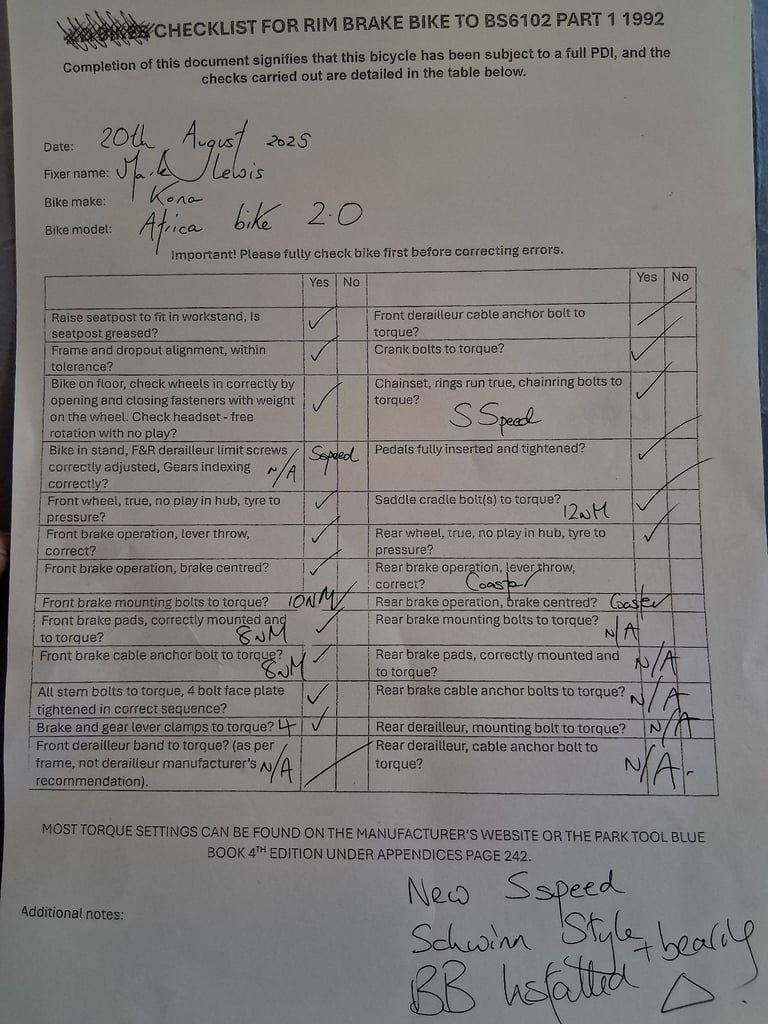 CHECKLIST FOR RIM BRAKE BIKE TO BS6102 PART 1 1992
Completion of this document signifies that this bicycle has been subject to a full PDI, and the
checks carried out are detailed in the table below.
Date: 20th August 2025
Fixer name: Mark Lewis
Bike make: Kona
Bike model: Africa bike 2.0
Important! Please fully check bike first before correcting errors.
Yes No
Yes No
Raise seatpost to fit in workstand, Is
seatpost greased? ✓
Front derailleur cable anchor bolt to
torque?
Frame and dropout alignment, within
tolerance? ✓
Crank bolts to torque? ✓
Bike on floor, check wheels in correctly by
opening and closing fasteners with weight
on the wheel. Check headset - free
rotation with no play? ✓
Chainset, rings run true, chainring bolts to
torque? ✓
S Speed
Bike in stand, F&R derailleur limit screws
correctly adjusted, Gears indexing
correctly? N/A Sspeed
Pedals fully inserted and tightened? ✓
Front wheel, true, no play in hub, tyre to
pressure? ✓
Saddle cradle bolt(s) to torque? 12NM ✓
Front brake operation, lever throw,
correct? ✓
Rear wheel, true, no play in hub, tyre to
pressure? ✓
Front brake operation, brake centred? ✓
Rear brake operation, lever throw,
correct? Coaster
Front brake mounting bolts to torque? 10NM ✓
Rear brake operation, brake centred? Coaster
Front brake pads, correctly mounted and
to torque? 8NM ✓
Rear brake mounting bolts to torque? N/A
Front brake cable anchor bolt to torque? 8NM ✓
Rear brake pads, correctly mounted and
to torque? N/A
All stem bolts to torque, 4 bolt face plate
tightened in correct sequence? ✓
Rear brake cable anchor bolts to torque? N/A
Brake and gear lever clamps to torque? 4 ✓
Rear derailleur, mounting bolt to torque? N/A
Front derailleur band to torque? (as per
frame, not derailleur manufacturer's N/A
recommendation).
Rear derailleur, cable anchor bolt to
torque? N/A-
MOST TORQUE SETTINGS CAN BE FOUND ON THE MANUFACTURER'S WEBSITE OR THE PARK TOOL BLUE
BOOK 4TH EDITION UNDER APPENDICES PAGE 242.
Additional notes:
New Sspeed
Schwinn Style + bearing
BB Installed